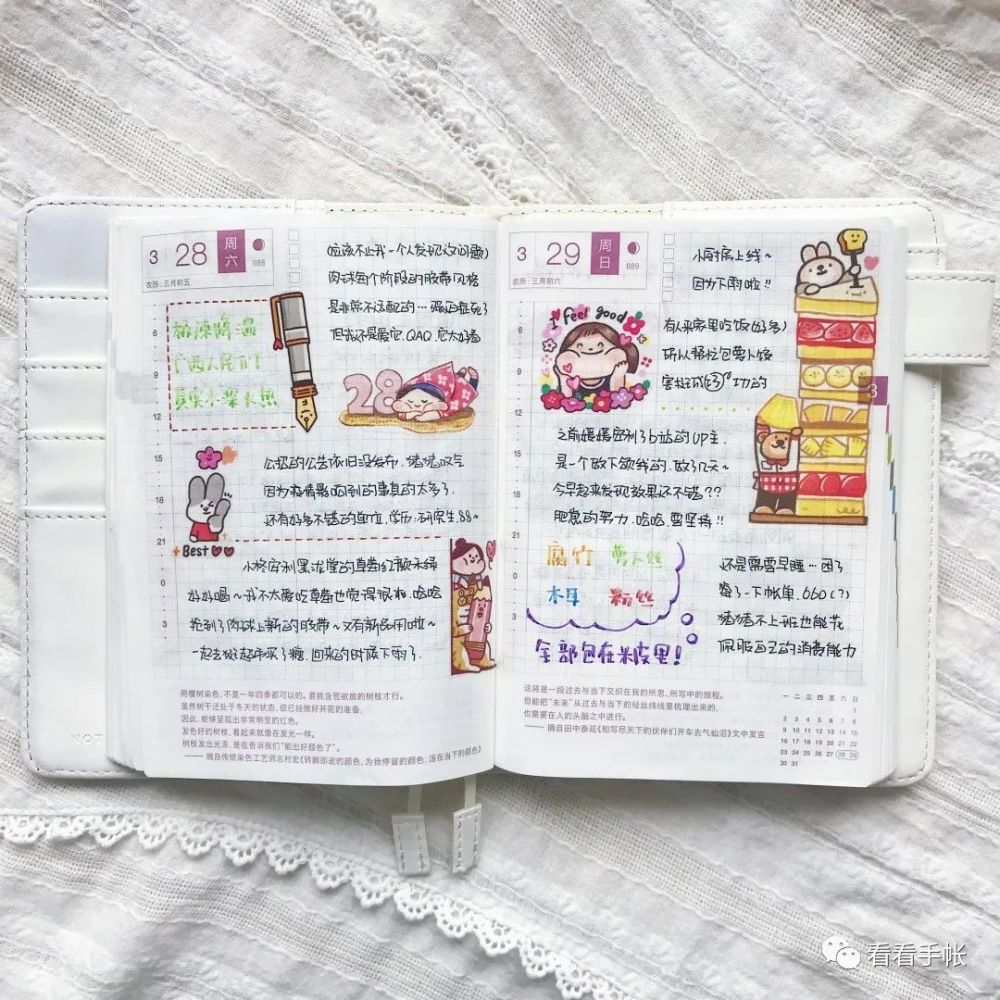 3 28 周六 088
农历:三月初五
(应该不止我一个人发现这问题)
肉球每个阶段的胶带风格
是非常不适配的…强迫症死了
但我还是爱它 QAQ 它太好看
降温
广西人民们
28
公招的公告依旧没发布,猪猪叹气
因为疫情影响到的事真的太多了,
还有好多不错的单位,学历:研究生,88~
Best
小佟安利黑泷堂的草莓红颜
好好喝~我不太爱吃草莓也觉得很松,哈哈
抢到了肉球上新的胶带~又有新品用啦~
一起去逛超市买了糖,回来的时候下雨了.
6
9
12
15
18
21
0
3
用樱树染色,不是一年四季都可以的。要挑含苞欲放的树枝才行。
虽然树干还处于冬天的状态,但已经做好开花的准备,
因此,能够呈现出非常明显的红色。
发色好的树枝,看起来就像在发光一样。
树枝发出光泽,是在告诉我们“能出好颜色了”。
——摘自传统染色工艺师志村宏《转瞬即逝的颜色,为我停留的颜色,活在当下的颜色》
NOT
3 29 周日 089
农历:三月初六
小厨房上线~
因为下雨啦!!
I feel good
有人来家里吃饭(好多)
所以帮忙包萝卜饭
之前媛媛安利了b站的UP主,
是一个做下颌线的,做了几天~
今早起来发现效果还不错??
肥象的努力,哈哈,要坚持!!
腐竹 萝卜丝
木耳 粉丝
全部包在米皮里!
还是需要早睡…困了
算了一下帐单,660(?)
猪猪不上班也能花
佩服自己的消费能力
3
6
9
12
15
18
21
0
3
这将是一段过去与当下交织在我的所思、所写中的旅程。
但能把“未来”从过去与当下的经丝纬线里梳理出来的,
也需要在人的头脑之中进行。
——摘自田中泰延《和写尽天下的伙伴们开车去气仙沼》文中发言
一 二 三 四 五 六 日
1
2 3 4 5 6 7 8
9 10 11 12 13 14 15
16 17 18 19 20 21 22
23 24 25 26 27 28 29
30 31
看看手帐